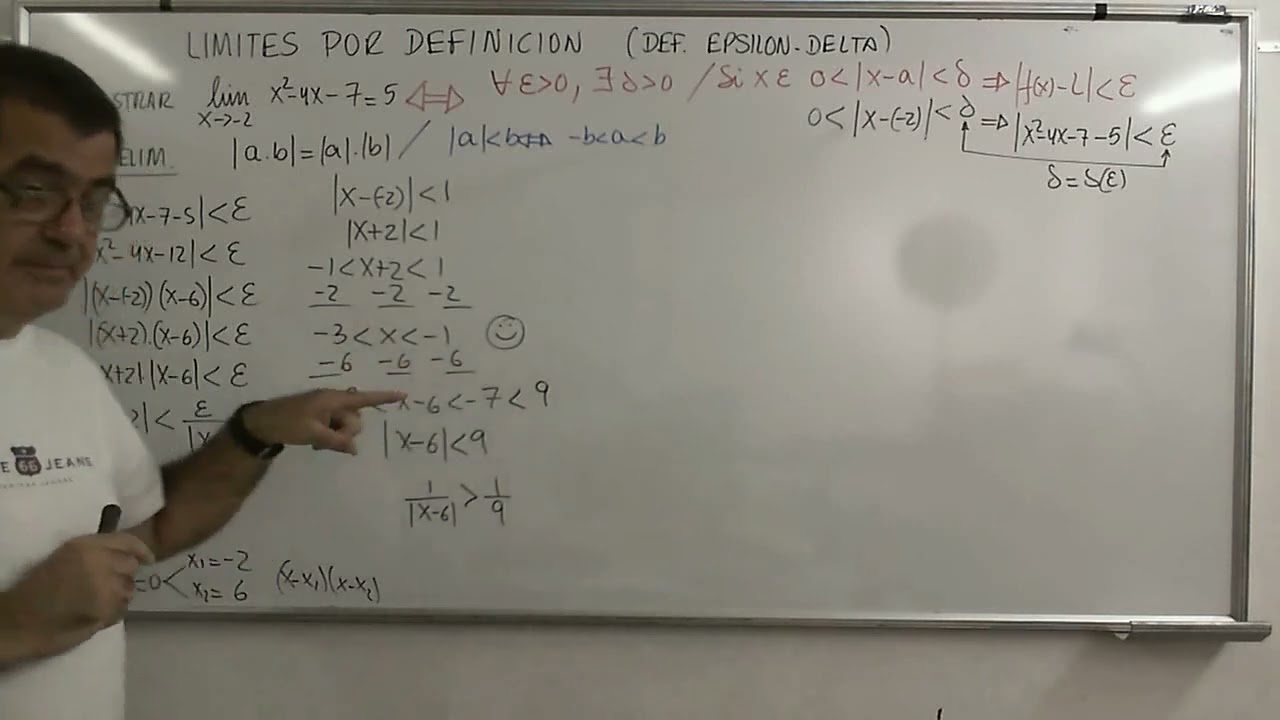 LIMITES POR DEFINICION (DEF. EPSILON-DELTA)
STRAR lim x→-2 x²-4x-7=5 ⟺ ∀ε>0, ∃δ>0 / Si x ∈ 0<|x-a|<δ ⇒ |f(x)-L|<ε
0<|x-(-2)|<δ ⇒ |x²-4x-7-5|<ε
δ=δ(ε)
|a.b|=|a|.|b| / |a|<b ⟺ -b<a<b
ELIM.
x-7-5|<ε
x²-4x-12|<ε
|(x-(-2))(x-6)|<ε
|(x+2).(x-6)|<ε
x+2|.|x-6|<ε
2|< ε/|x
|x-(-2)|<1
|x+2|<1
-1<x+2<1
-2 -2 -2
-3<x<-1
-6 -6 -6
<x-6<-7<9
|x-6|<9
1/|x-6| > 1/9
=0< x₁=-2
x₂=6
(x-x₁)(x-x₂)
E 66 JEANS